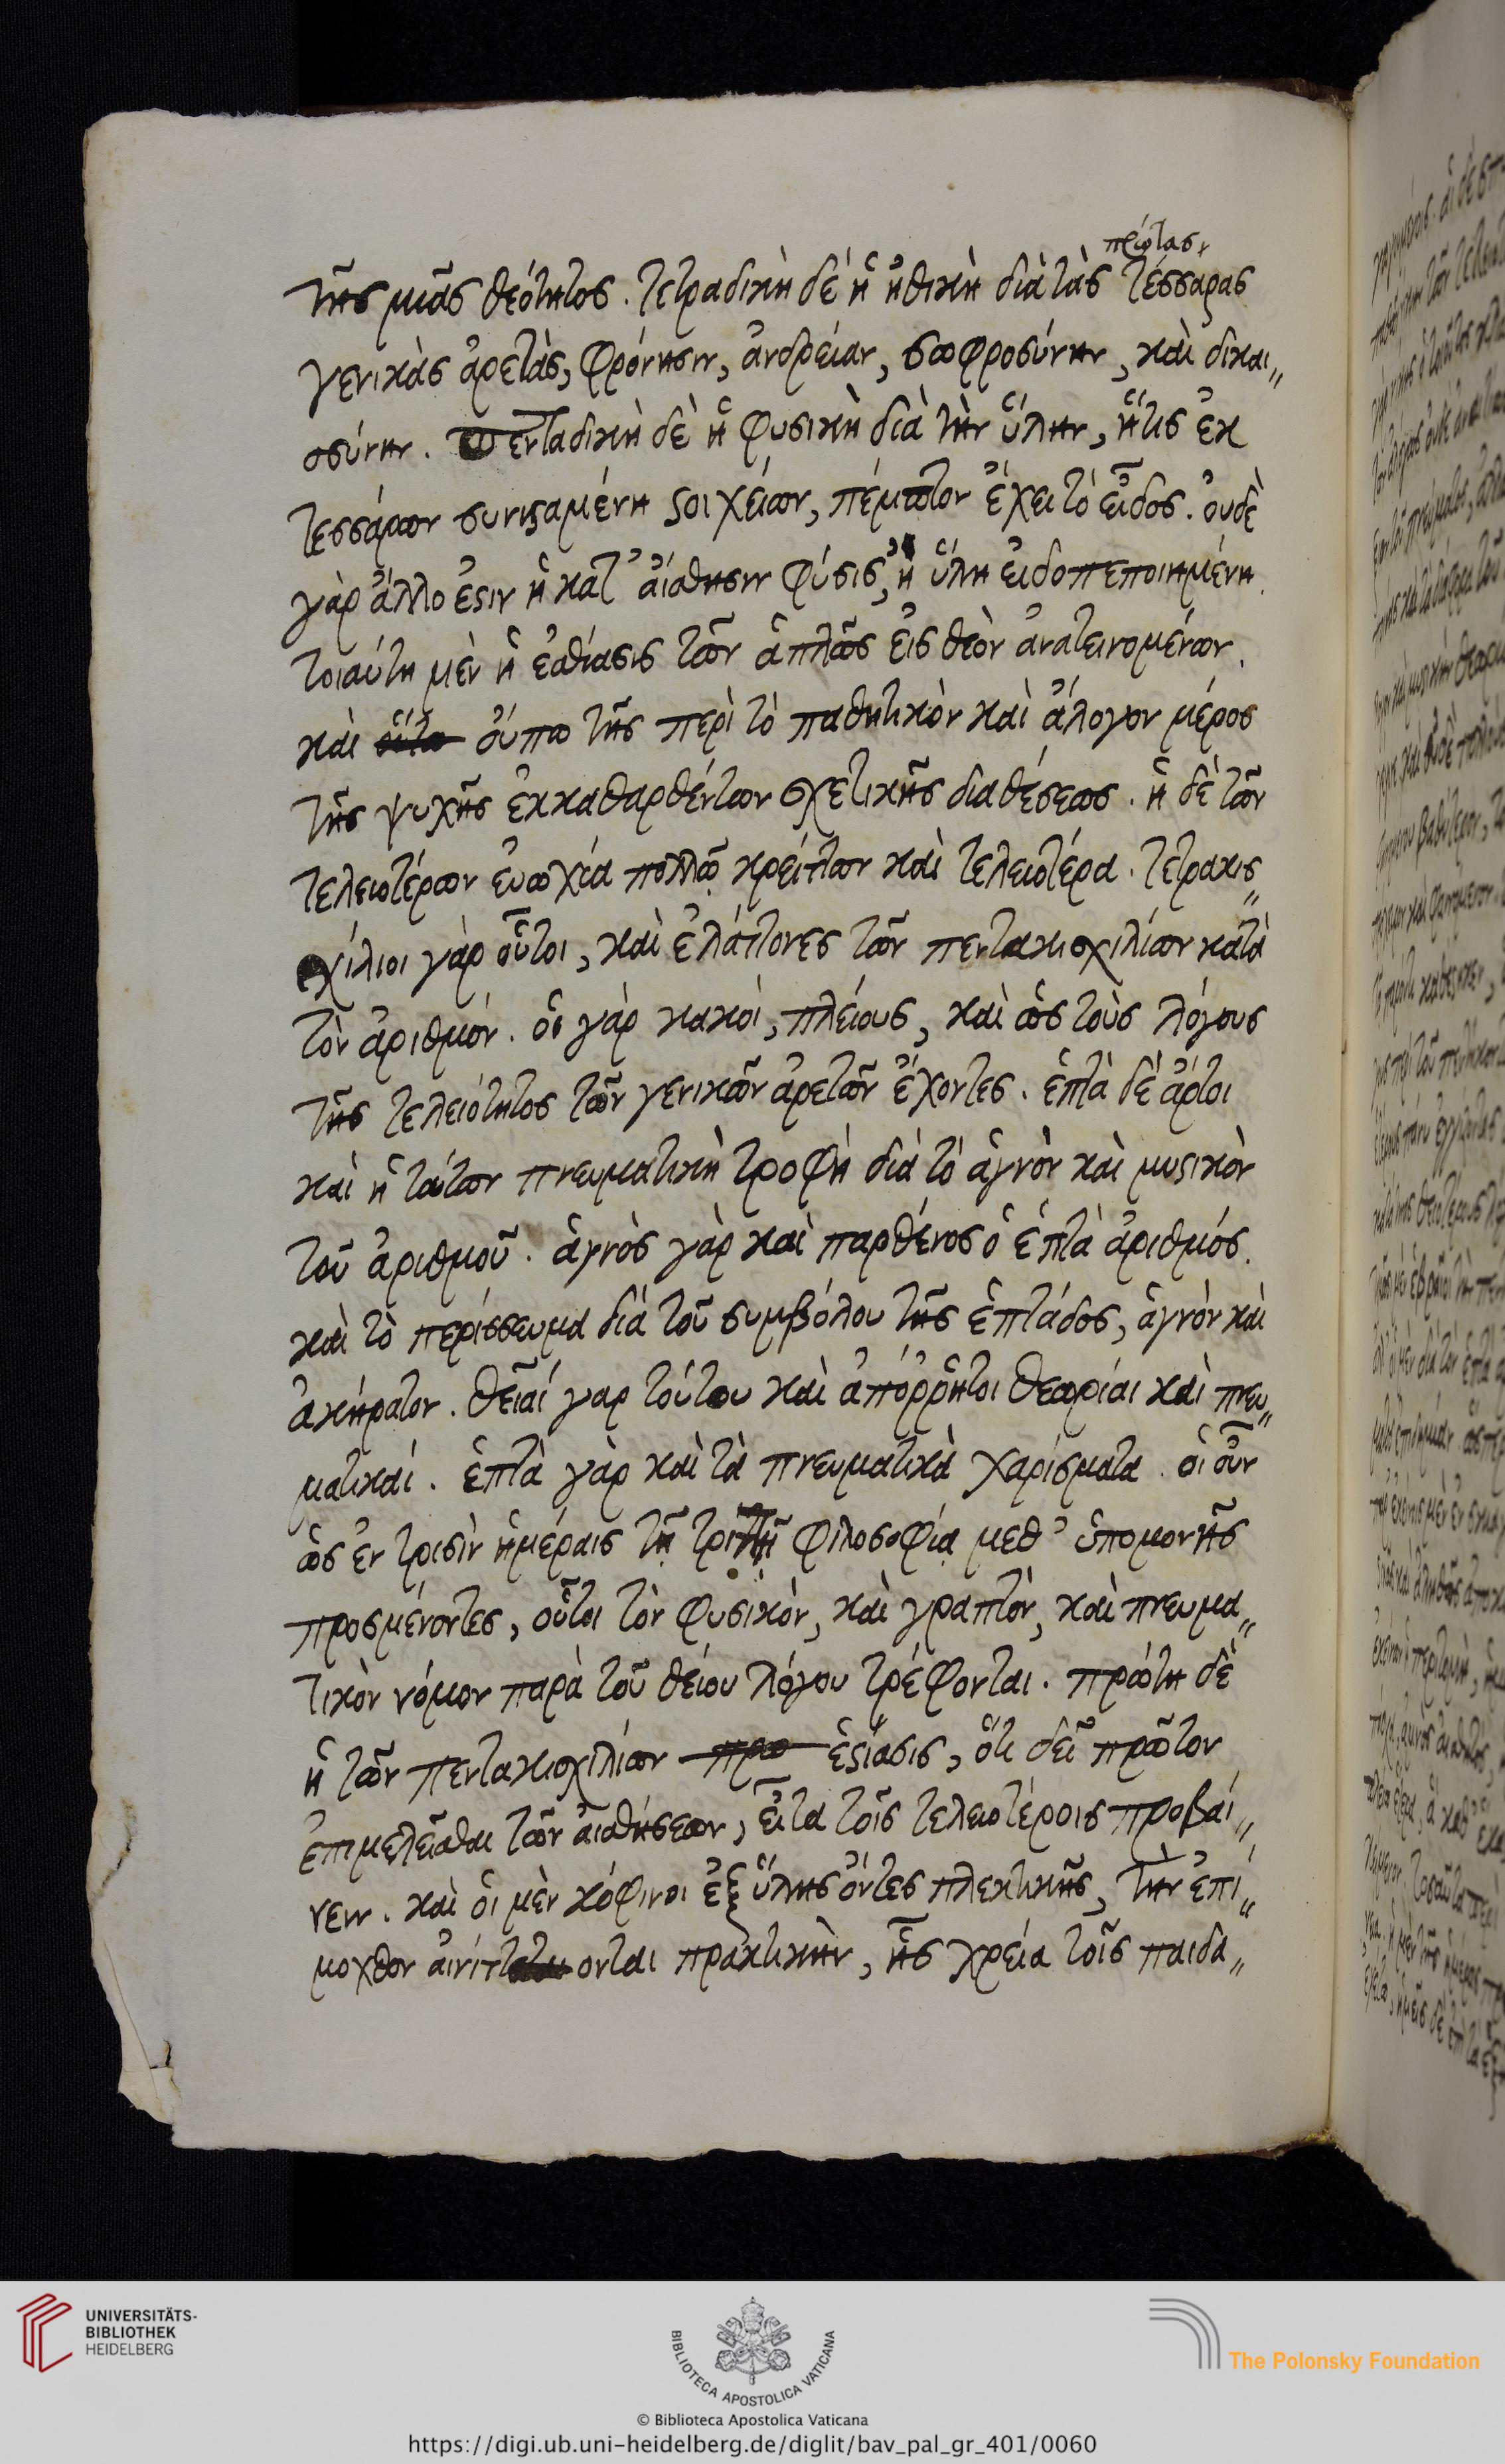 πρώτας
τῆς μιᾶς θεότητος. τετραδικὴ δὲ ἡ ἠθικὴ διὰ τὰς τέσσαρας
γενικὰς ἀρετὰς, φρόνησιν, ἀνδρείαν, σωφροσύνην, καὶ δικαι„
οσύνην. πενταδικὴ δὲ ἡ φυσικὴ διὰ τὴν ὕλην, ἥτις ἐκ
τεσσάρων συνισταμένη στοιχείων, πέμπτον ἔχει τὸ εἶδος. οὐδὲ
γὰρ ἄλλο ἐστιν ἡ κατ᾽ αἴσθησιν φύσις, ἢ ὕλη εἰδοπεποιημένη.
τοιαύτη μὲν ἡ ἑστίασις τῶν ἁπλῶς εἰς θεὸν ἀνατεινομένων.
καὶ οὕτω οὔπω τῆς περὶ τὸ παθητικὸν καὶ ἄλογον μέρος
τῆς ψυχῆς ἐκκαθαρθέντων σχετικῆς διαθέσεως. ἡ δὲ τῶν
τελειοτέρων εὐωχία πολλῷ κρείττων καὶ τελειοτέρα. τετρακισ„
χίλιοι γὰρ οὗτοι, καὶ ἐλάττονες τῶν πεντακισχιλίων κατὰ
τὸν ἀριθμόν. οἱ γὰρ κακοὶ, πλείους, καὶ ὡς τοὺς λόγους
τῆς τελειότητος τῶν γενικῶν ἀρετῶν ἔχοντες. ἑπτὰ δὲ ἄρτοι
καὶ ἡ τούτων πνευματικὴ τροφὴ διὰ τὸ ἁγνὸν καὶ μυστικὸν
τοῦ ἀριθμοῦ. ἁγνὸς γὰρ καὶ παρθένος ὁ ἑπτὰ ἀριθμός.
καὶ τὸ περίσσευμα διὰ τοῦ συμβόλου τῆς ἑπτάδος, ἁγνὸν καὶ
ἀκήρατον. θεῖαί γαρ τούτου καὶ ἀπόῤῥητοι θεωρίαι καὶ πνευ„
ματικαί. ἑπτὰ γὰρ καὶ τὰ πνευματικὰ χαρίσματα. οἱ οὖν
ὡς ἐν τρισὶν ἡμέραις τῇ τριττῇ φιλοσοφίᾳ μεθ᾽ ὑπομονῆς
προσμένοντες, οὗτοι τὸν φυσικὸν, καὶ γραπτὸν, καὶ πνευμα„
τικὸν νόμον παρὰ τοῦ θείου λόγου τρέφονται. πρώτη δὲ
ἡ τῶν πεντακισχιλίων πρω ἑστίασις, ὅτι δεῖ πρῶτον
ἐπιμελεῖσθαι τῶν αἰσθήσεων, εἶτα τοῖς τελειοτέροις προβαί„
νειν. καὶ οἱ μὲν κόφινοι ἐξ ὕλης ὄντες πλεκτικῆς, τὴν ἐπί„
μοχθον αἰνίττονται πρακτικὴν, ἧς χρεία τοῖς παιδα„
UNIVERSITÄTS-
BIBLIOTHEK
HEIDELBERG
BIBLIOTECA APOSTOLICA VATICANA
The Polonsky Foundation
© Biblioteca Apostolica Vaticana
https://digi.ub.uni-heidelberg.de/diglit/bav_pal_gr_401/0060